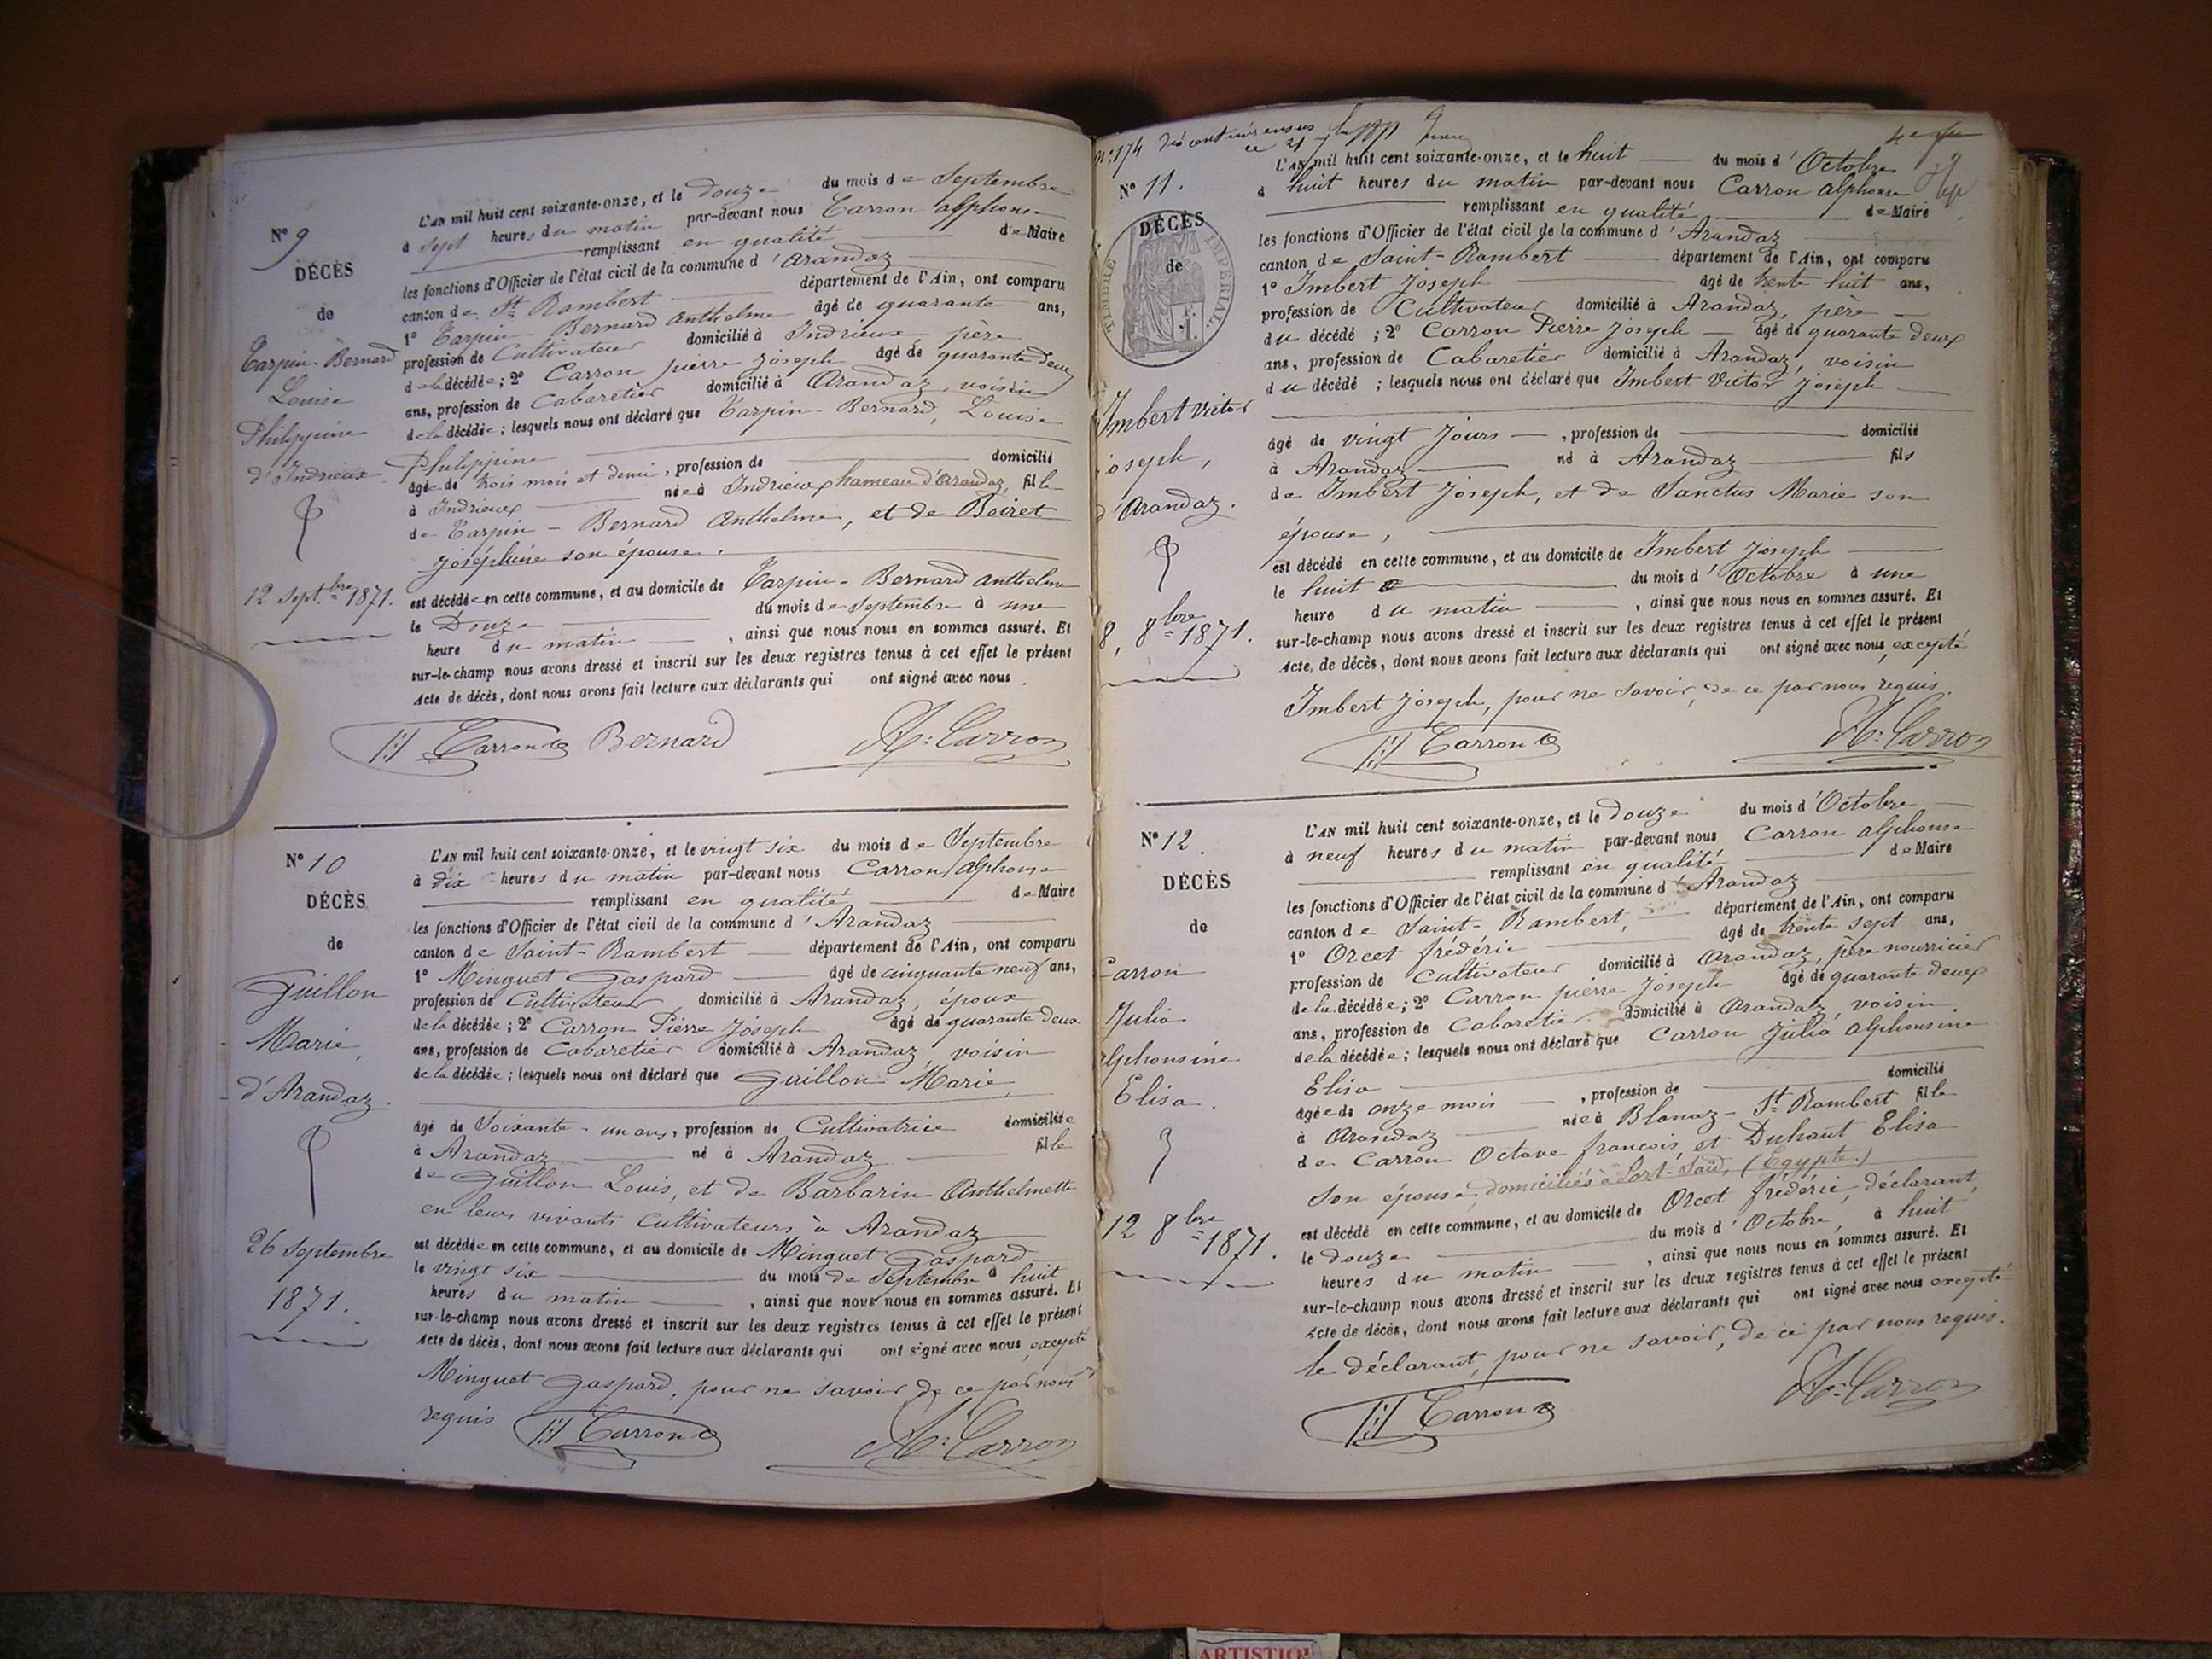 N° 9
DÉCÈS
de
Tarpin-Bernard
Louise
Philippine
d'Indrieux
12 Sept.bre 1871.
L'AN mil huit cent soixante-onze, et le douze du mois de Septembre
à sept heures du matin par-devant nous Carron alphonse
remplissant en qualité de Maire
les fonctions d'Officier de l'état civil de la commune d'Arandaz
canton de St Rambert département de l'Ain, ont comparu
1° Tarpin-Bernard Anthelme âgé de quarante ans,
profession de Cultivateur domicilié à Indrieux, père
de la décédée; 2° Carron pierre Joseph âgé de quarante deux
ans, profession de Cabaretier domicilié à Arandaz, voisin
de la décédée; lesquels nous ont déclaré que Tarpin-Bernard, Louise
Philippine
âgée de trois mois et demi, profession de domicilié
à Indrieux née à Indrieux hameau d'Arandaz, fille
de Tarpin-Bernard Anthelme, et de Boiret
Joséphine son épouse,
est décédée en cette commune, et au domicile de Tarpin-Bernard Anthelme
le Douze du mois de Septembre à une
heure du matin, ainsi que nous nous en sommes assuré. Et
sur-le-champ nous avons dressé et inscrit sur les deux registres tenus à cet effet le présent
Acte de décès, dont nous avons fait lecture aux déclarants qui ont signé avec nous.
Carron Bernard A. Carron
N° 10
DÉCÈS
de
Guillon
Marie,
d'Arandaz.
26 Septembre
1871.
L'AN mil huit cent soixante-onze, et le vingt six du mois de Septembre
à dix heures du matin par-devant nous Carron Alphonse
remplissant en qualité de Maire
les fonctions d'Officier de l'état civil de la commune d'Arandaz
canton de Saint-Rambert département de l'Ain, ont comparu
1° Minguet Gaspard âgé de cinquante neuf ans,
profession de Cultivateur domicilié à Arandaz, époux
de la décédée; 2° Carron Pierre Joseph âgé de quarante deux
ans, profession de Cabaretier domicilié à Arandaz, voisin
de la décédée; lesquels nous ont déclaré que Guillon Marie,
âgé de Soixante-un ans, profession de Cultivatrice domiciliée
à Arandaz né à Arandaz fille
de Guillon Louis, et de Barbarin Anthelmette
en leurs vivants Cultivateurs à Arandaz
est décédée en cette commune, et au domicile de Minguet Gaspard
le vingt six du mois de Septembre à huit
heures du matin, ainsi que nous nous en sommes assuré. Et
sur-le-champ nous avons dressé et inscrit sur les deux registres tenus à cet effet le présent
Acte de décès, dont nous avons fait lecture aux déclarants qui ont signé avec nous, excepté
Minguet Gaspard, pour ne savoir de ce par nous
requis Carron A. Carron
N° 11.
DÉCÈS
de
TIMBRE IMPERIAL
Imbert Victor
Joseph,
d'Arandaz.
8, 8bre 1871.
L'AN mil huit cent soixante-onze, et le huit du mois d'Octobre
à huit heures du matin par-devant nous Carron Alphonse
remplissant en qualité de Maire
les fonctions d'Officier de l'état civil de la commune d'Arandaz
canton de Saint-Rambert département de l'Ain, ont comparu
1° Imbert Joseph âgé de trente huit ans,
profession de Cultivateur domicilié à Arandaz, père
du décédé; 2° Carron Pierre Joseph âgé de quarante deux
ans, profession de Cabaretier domicilié à Arandaz, voisin
du décédé; lesquels nous ont déclaré que Imbert Victor Joseph
âgé de vingt Jours, profession de domicilié
à Arandaz né à Arandaz fils
de Imbert Joseph, et de Sanctus Marie son
épouse,
est décédé en cette commune, et au domicile de Imbert Joseph
le huit du mois d'Octobre à une
heure du matin, ainsi que nous nous en sommes assuré. Et
sur-le-champ nous avons dressé et inscrit sur les deux registres tenus à cet effet le présent
Acte, de décès, dont nous avons fait lecture aux déclarants qui ont signé avec nous, excepté
Imbert Joseph, pour ne savoir, de ce par nous requis.
Carron A. Carron
N° 12.
DÉCÈS
de
Carron
Julia
Alphonsine
Elisa.
12 8bre 1871.
L'AN mil huit cent soixante-onze, et le douze du mois d'Octobre
à neuf heures du matin par-devant nous Carron alphonse
remplissant en qualité de Maire
les fonctions d'Officier de l'état civil de la commune d'Arandaz
canton de Saint-Rambert, département de l'Ain, ont comparu
1° Orcet frédéric âgé de trente sept ans,
profession de Cultivateur domicilié à Arandaz, père nourricier
de la décédée; 2° Carron pierre Joseph âgé de quarante deux
ans, profession de Cabaretier domicilié à Arandaz, voisin
de la décédée; lesquels nous ont déclaré que Carron Julia Alphonsine
Elisa
âgée de onze mois, profession de domicilié
à Arandaz née à Blanaz-St Rambert fille
de Carron Octave françois, et Duhaut Elisa
son épouse, domiciliés à Port-Saïd, (Egypte.)
est décédé en cette commune, et au domicile de Orcet frédéric, déclarant,
le douze du mois d'Octobre, à huit
heures du matin, ainsi que nous nous en sommes assuré. Et
sur-le-champ nous avons dressé et inscrit sur les deux registres tenus à cet effet le présent
Acte de décès, dont nous avons fait lecture aux déclarants qui ont signé avec nous excepté
le déclarant, pour ne savoir, de ce par nous requis.
Carron A. Carron
ARTISTIQ